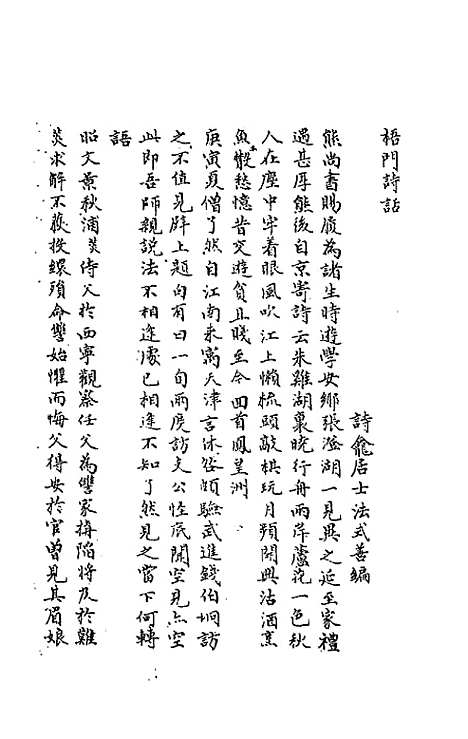 梧門詩話
詩龕居士法式善編
熊尚書賜履為諸生時遊學安鄉張澹湖一見異之延至家禮
遇甚厚熊後自京寄詩云朱雞湖裏曉行舟兩岸蘆花一色秋
人在塵中牢着眼風吹江上懶梳頭敲棋玩月頻開興沽酒烹
魚骰愁憶昔交遊貧且賤至今回首鳳皇洲
庚寅夏僧了然自江南來寓天津言休咎頗驗武進錢伯坰訪
之不值見壁上題句有曰一旬兩度訪支公性底開空見亦空
此即吾師親說法不相逢處已相逢不知了然見之當下何轉
語
昭文景秋浦燮侍父於西寧觀察任父為讐家搆陷將及於難
燮求解不獲投繯殞命讐始懼而悔父得安於官曾見其眉娘